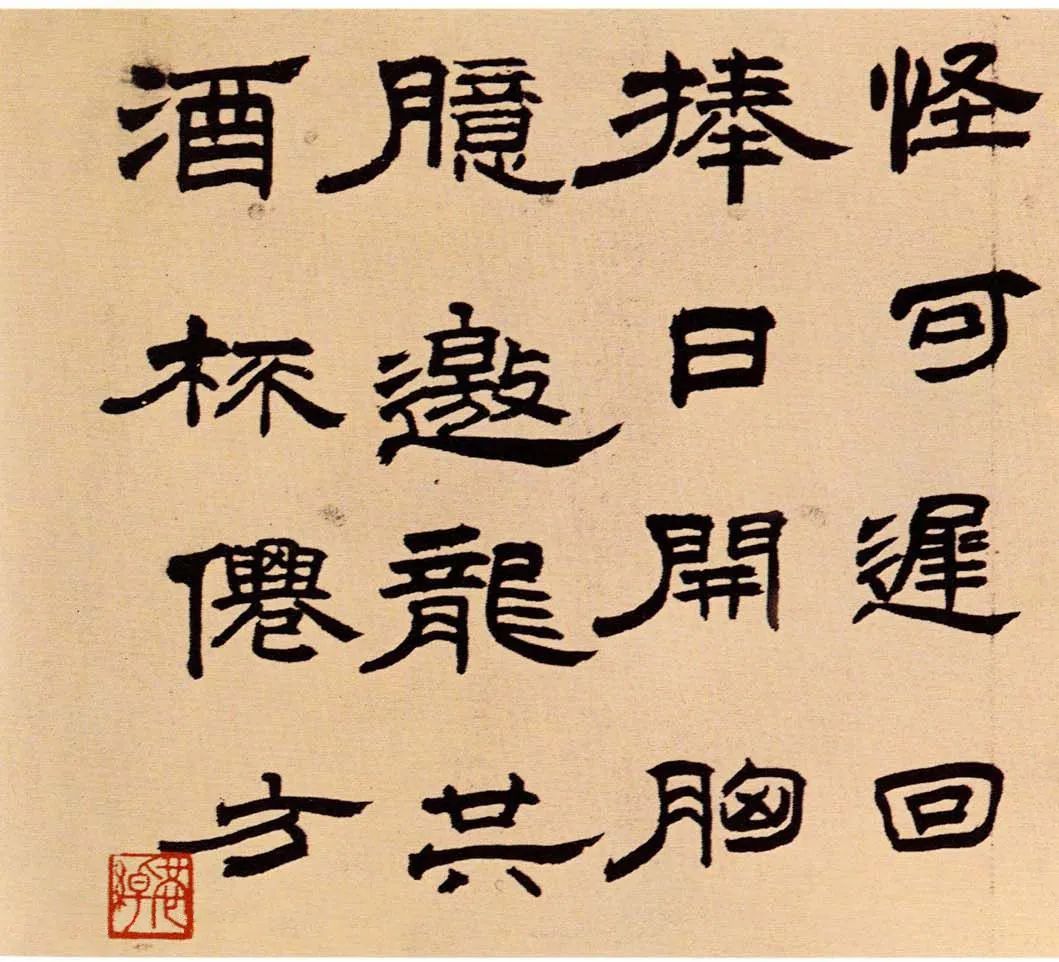 怪可遲回
捧日開胸
臆邀龍共
酒杯僊方